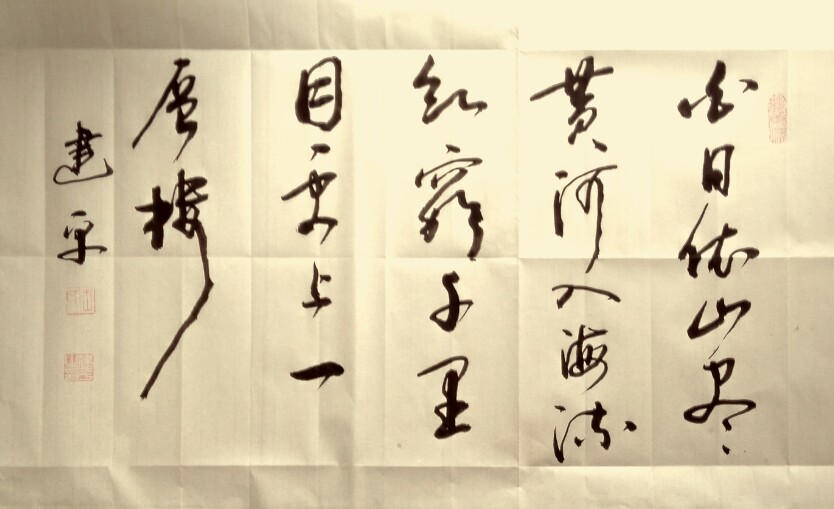 白日依山尽
黄河入海流
欲窮千里
目更上一
層楼
建平